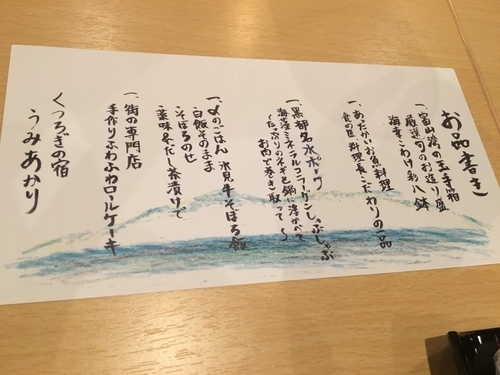 お品書き
一、富山湾の玉手箱
厳選旬のお造り盛
海幸こわけ彩八鉢
一、あったかいお魚料理
食の匠 料理長こだわりの一品
一、黒部名水ポーク
海洋ミネラルコラーゲンしゃぶしゃぶ
〜たっぷりのネギを鍋に浮かべて
お肉で巻き取って〜
一、〆のごはん 氷見牛そぼろ飯
白飯そのまま
そぼろのせ
薬味&だし茶漬けで
一、街の専門店
手作りふわふわロールケーキ
くつろぎの宿
うみあかり